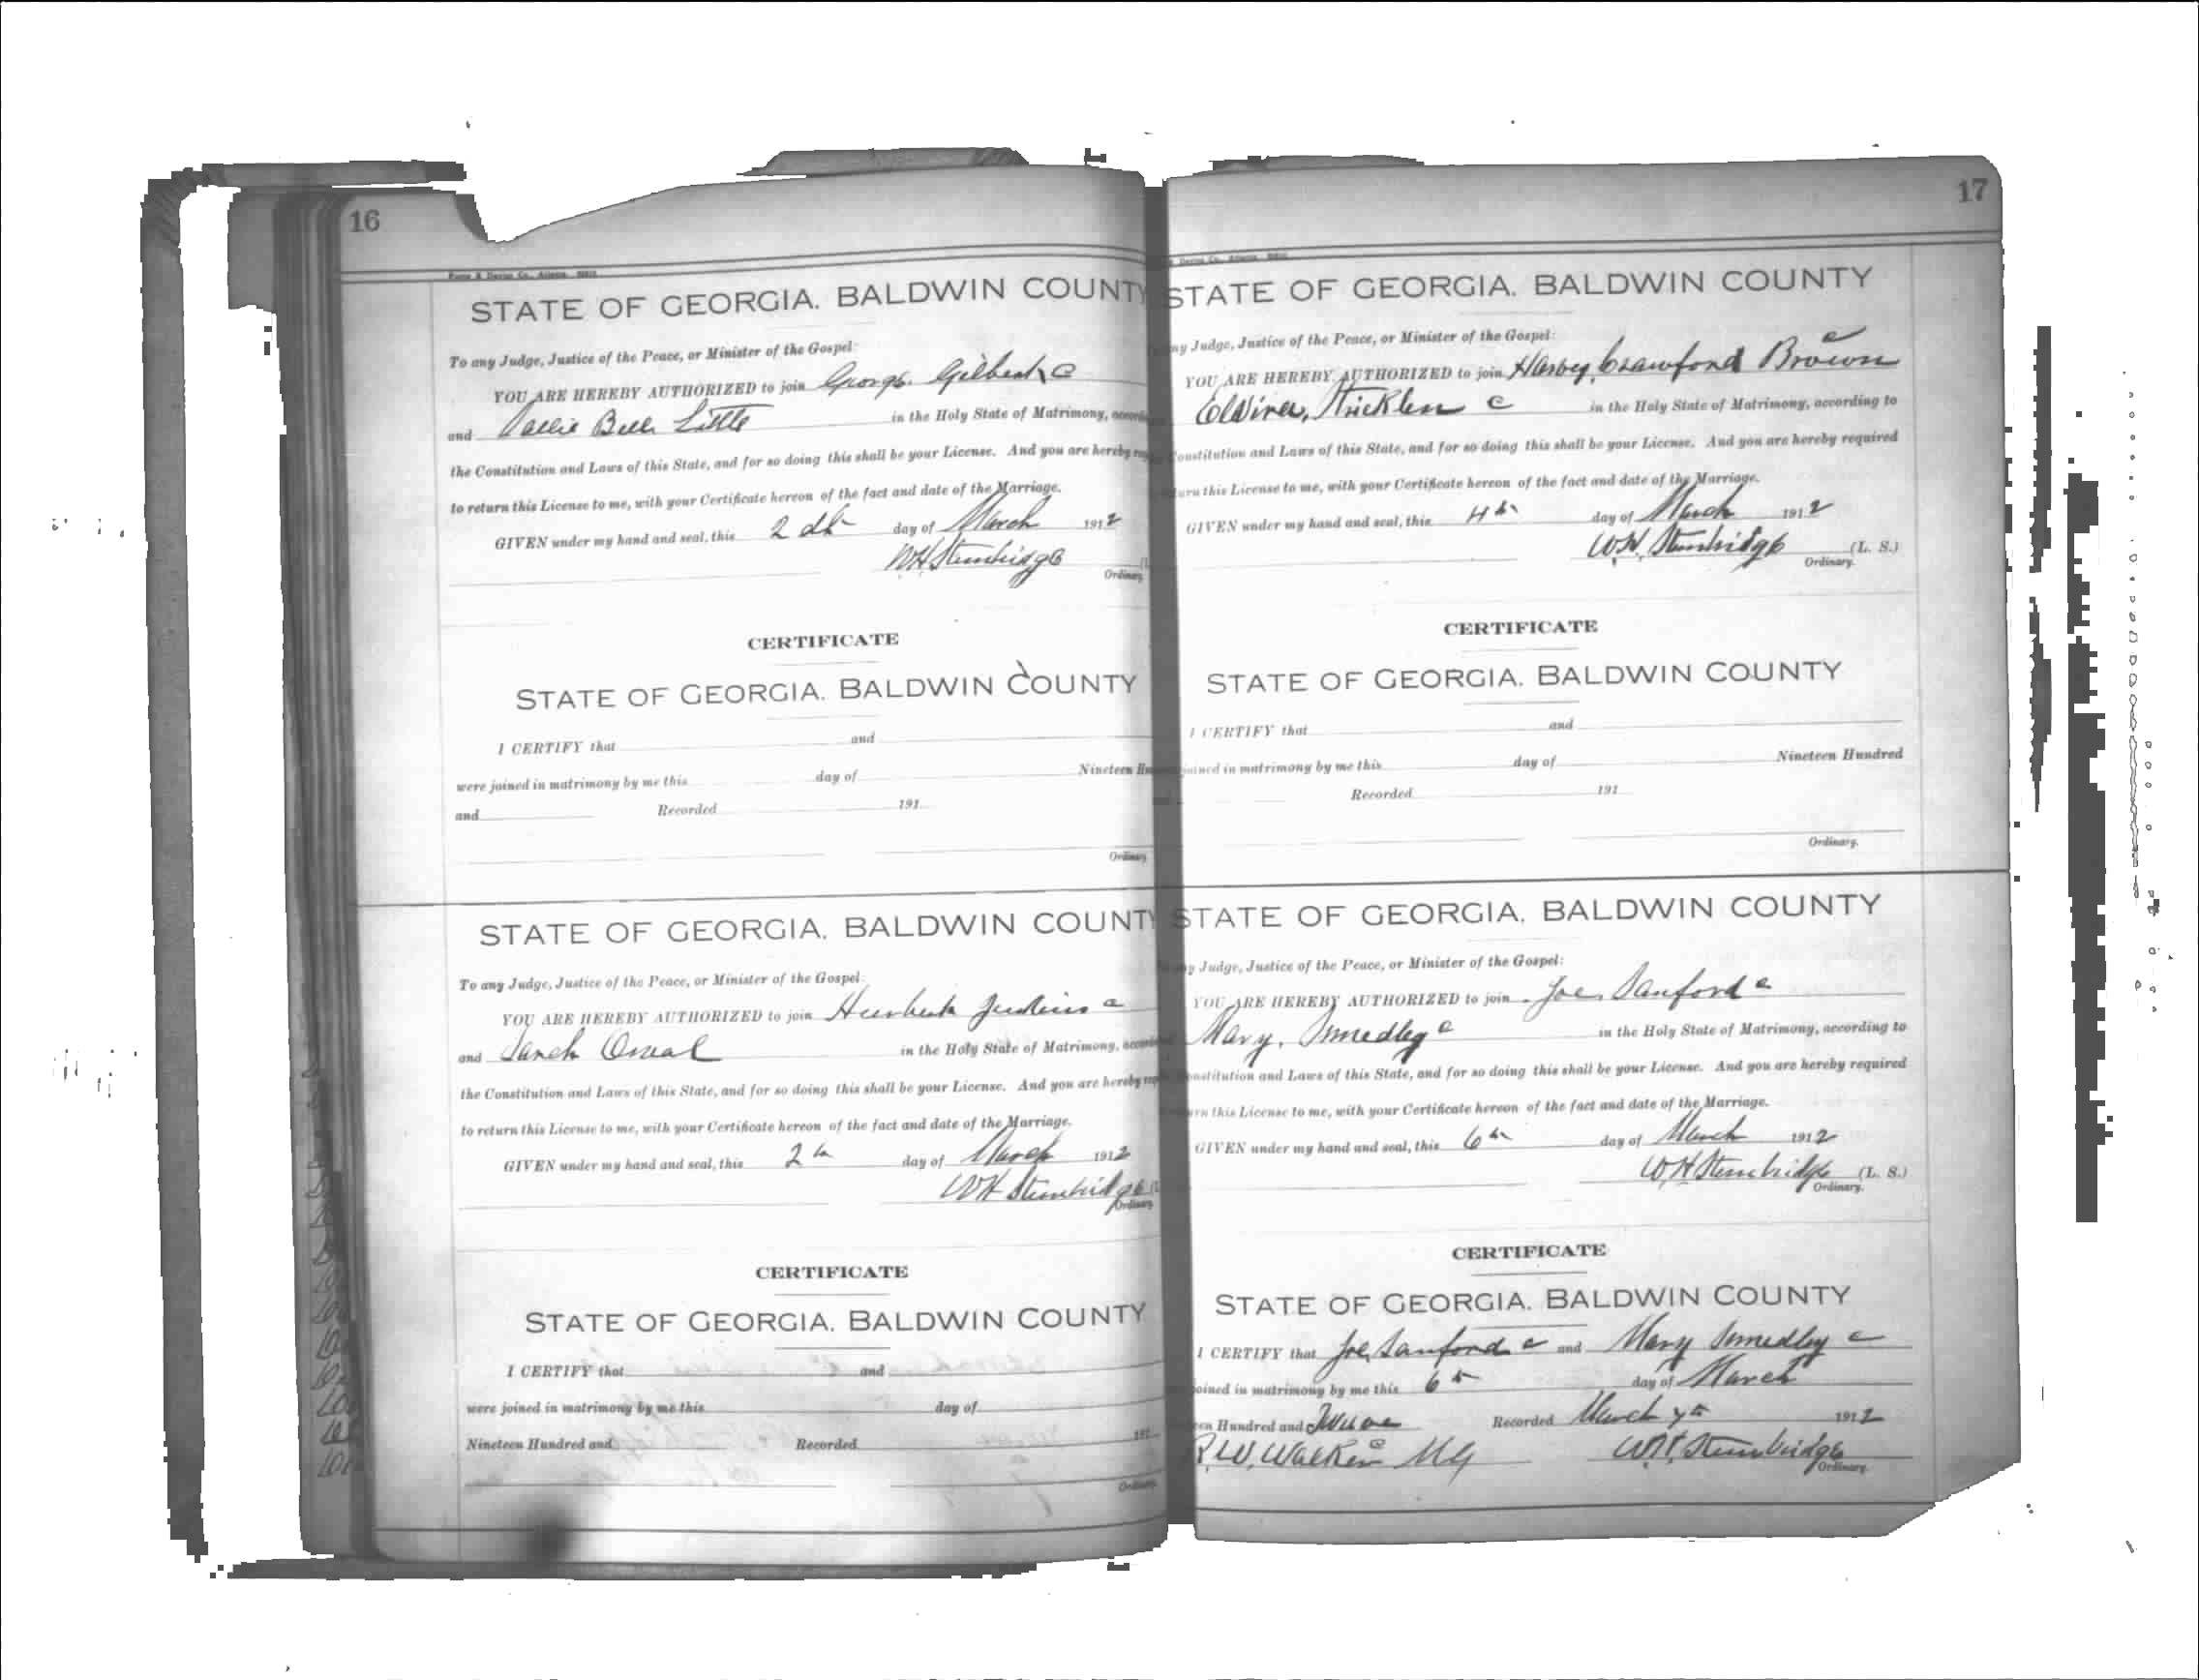 16
STATE OF GEORGIA. BALDWIN COUNTY
To any Judge, Justice of the Peace, or Minister of the Gospel:
YOU ARE HEREBY AUTHORIZED to join George Gilbert c
and Bell Little in the Holy State of Matrimony,
the Constitution and Laws of this State, and for so doing this shall be your License. And you are hereby
to return this License to me, with your Certificate hereon of the fact and date of the Marriage.
GIVEN under my hand and seal, this 2 day of March 1912
WH Stembridge
Ordinary
CERTIFICATE
STATE OF GEORGIA. BALDWIN COUNTY
I CERTIFY that and
were joined in matrimony by me this day of Nineteen
and Recorded 191
Ordinary
STATE OF GEORGIA. BALDWIN COUNTY
To any Judge, Justice of the Peace, or Minister of the Gospel:
YOU ARE HEREBY AUTHORIZED to join Jenkins c
and Oneal in the Holy State of Matrimony,
the Constitution and Laws of this State, and for so doing this shall be your License. And you are hereby
to return this License to me, with your Certificate hereon of the fact and date of the Marriage.
GIVEN under my hand and seal, this 2 day of March 1912
WH Stembridge
Ordinary
CERTIFICATE
STATE OF GEORGIA. BALDWIN COUNTY
I CERTIFY that and
were joined in matrimony by me this day of
Nineteen Hundred and Recorded 191
Ordinary
17
STATE OF GEORGIA. BALDWIN COUNTY
Judge, Justice of the Peace, or Minister of the Gospel:
YOU ARE HEREBY AUTHORIZED to join Harvey Crawford Brown c
Stricklen c in the Holy State of Matrimony, according to
Constitution and Laws of this State, and for so doing this shall be your License. And you are hereby required
this License to me, with your Certificate hereon of the fact and date of the Marriage.
GIVEN under my hand and seal, this 4th day of March 1912
W.H. Stembridge (L. S.)
Ordinary.
CERTIFICATE
STATE OF GEORGIA. BALDWIN COUNTY
I CERTIFY that and
joined in matrimony by me this day of Nineteen Hundred
Recorded 191
Ordinary.
STATE OF GEORGIA. BALDWIN COUNTY
Judge, Justice of the Peace, or Minister of the Gospel:
YOU ARE HEREBY AUTHORIZED to join Joe Sanford c
Mary, Smedley c in the Holy State of Matrimony, according to
Constitution and Laws of this State, and for so doing this shall be your License. And you are hereby required
this License to me, with your Certificate hereon of the fact and date of the Marriage.
GIVEN under my hand and seal, this 6th day of March 1912
W H Stembridge (L. S.)
Ordinary.
CERTIFICATE
STATE OF GEORGIA. BALDWIN COUNTY
I CERTIFY that Joe Sanford c and Mary Smedley c
joined in matrimony by me this 6th day of March
Hundred and Twelve Recorded March 7th 1912
R.W. Walker c MG W.H. Stembridge
Ordinary.